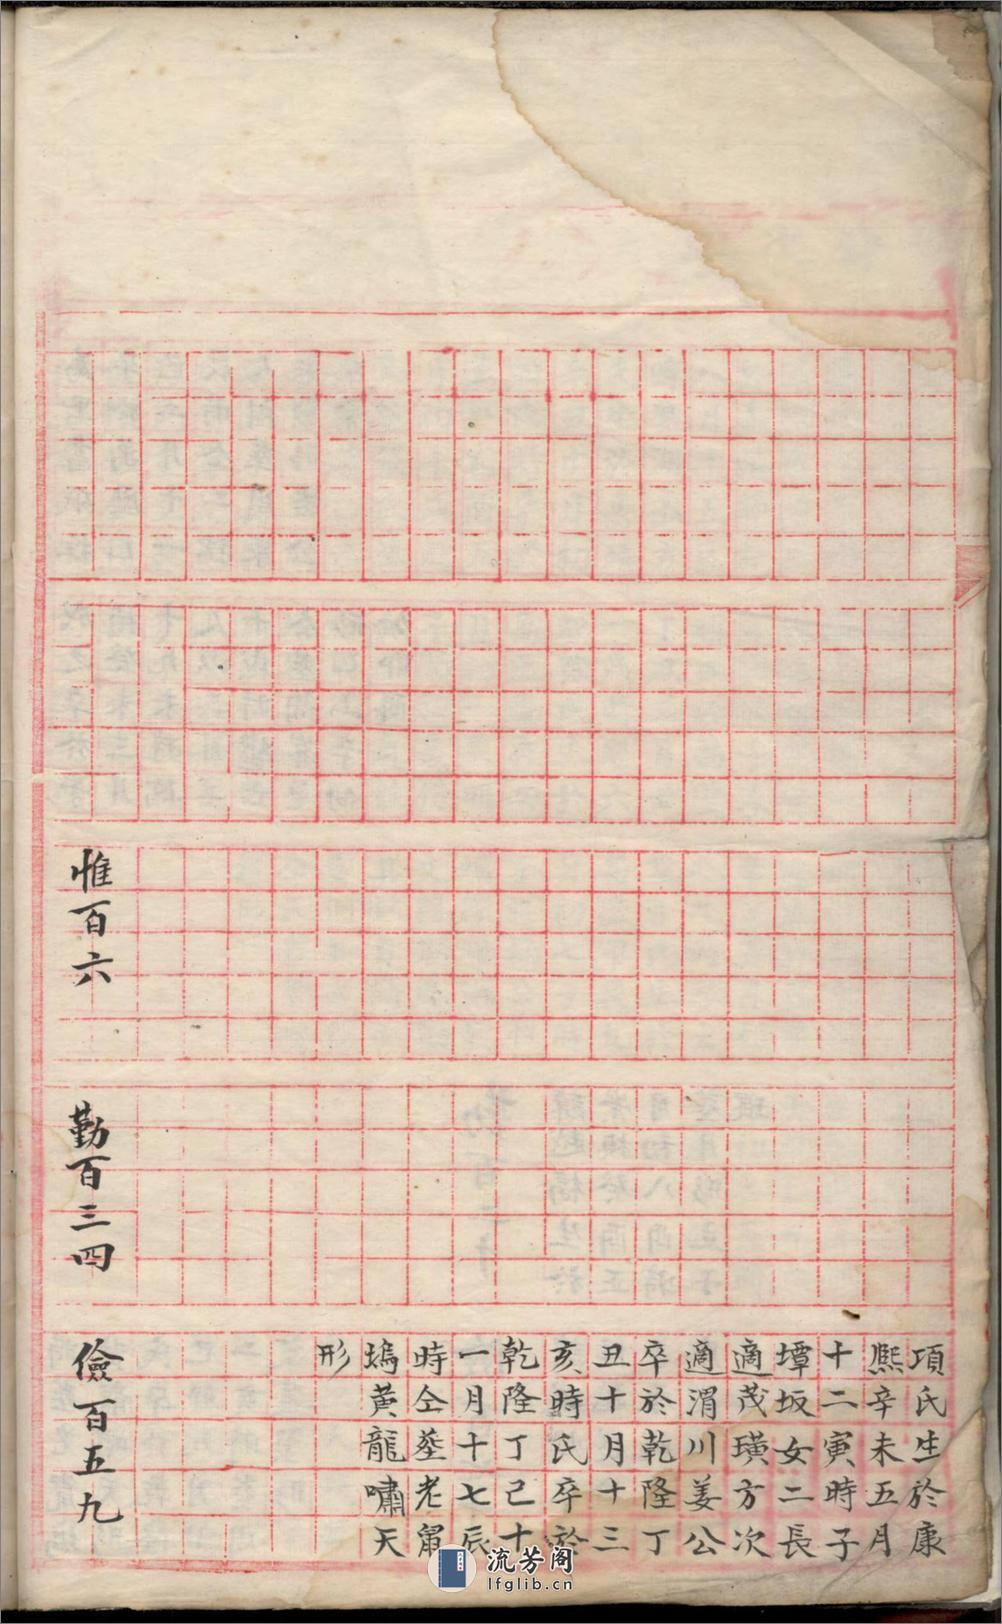 項氏生於康
熙辛未五月
十二寅時子
墰坂女二長
適茂璜方次
適渭川姜公
卒於乾隆丁
丑十月十三
亥時氏卒於
乾隆丁己十
一月十七辰
時仝塟老甯
塢黄龍嘯天
形
惟百六
勤百三四
儉百五九
流芳阁
lfglib.cn